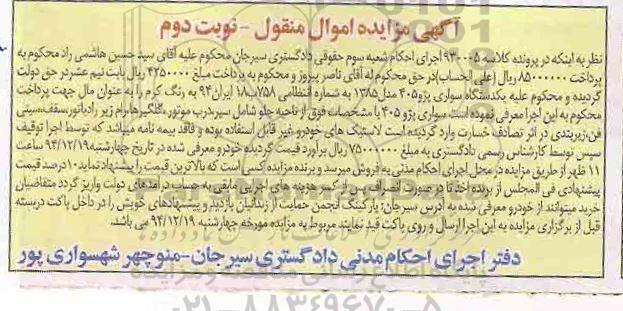 آگهی مزایده اموال منقول - نوبت دوم
نظر به اینکه در پرونده کلاسه ۹۳۰۰۰۵ اجرای احکام شعبه سوم حقوقی دادگستری سیرجان محکوم علیه آقای سید حسین هاشمی راد محکوم به
پرداخت ۸۵۰۰۰۰۰۰ ریال (علی الحساب) در حق محکوم له آقای ناصر پیروز و محکوم به پرداخت مبلغ ۴۲۵۰۰۰۰ ریال بابت نیم عشر در حق دولت
گردیده و محکوم علیه یکدستگاه سواری پژو ۴۰۵ مدل ۱۳۸۵ به شماره انتظامی ۷۵۸ ۱۸ ایران ۹۴ به رنگ کرم را به عنوان مال جهت پرداخت
محکوم به این اجرا معرفی نموده است. سواری پژو ۴۰۵ با مشخصات فوق از ناحیه جلو شامل سپر، درب موتور، گلگیرها، رام زیر رادیاتور، سقف، سینی
فن، زیربندی در اثر تصادف خسارت وارد گردیده است لاستیک های خودرو غیر قابل استفاده بوده و فاقد بیمه نامه میباشد که توسط اجرا توقیف
سپس توسط کارشناس رسمی دادگستری به مبلغ ۷۵۰۰۰۰۰۰ ریال برآورد قیمت گردیده خودرو معرفی شده در تاریخ چهارشنبه ۹۴/۱۲/۱۹ ساعت
۱۱ ظهر از طریق مزایده در محل اجرای احکام مدنی به فروش میرسد و برنده مزایده کسی است که بالاترین قیمت را پیشنهاد نماید ۱۰ درصد قیمت
پیشنهادی فی المجلس از برنده اخذ تا در صورت انصراف پس از کسر هزینه های اجرایی مابقی به حساب درآمدهای دولت واریز گردد متقاضیان
خرید میتوانند از خودرو معرفی شده به آدرس سیرجان: پارکینگ انجمن حمایت از زندانیان بازدید و پیشنهادهای خویش را در داخل پاکت دربسته
قبل از برگزاری مزایده به این اجرا ارسال و روی پاکت قید نمایند مربوط به مزایده مورخه چهارشنبه ۹۴/۱۲/۱۹ می باشد.
دفتر اجرای احکام مدنی دادگستری سیرجان - منوچهر شهسواری پور
۰۲۱-۸۸۳۴۹۶۷۰-۵